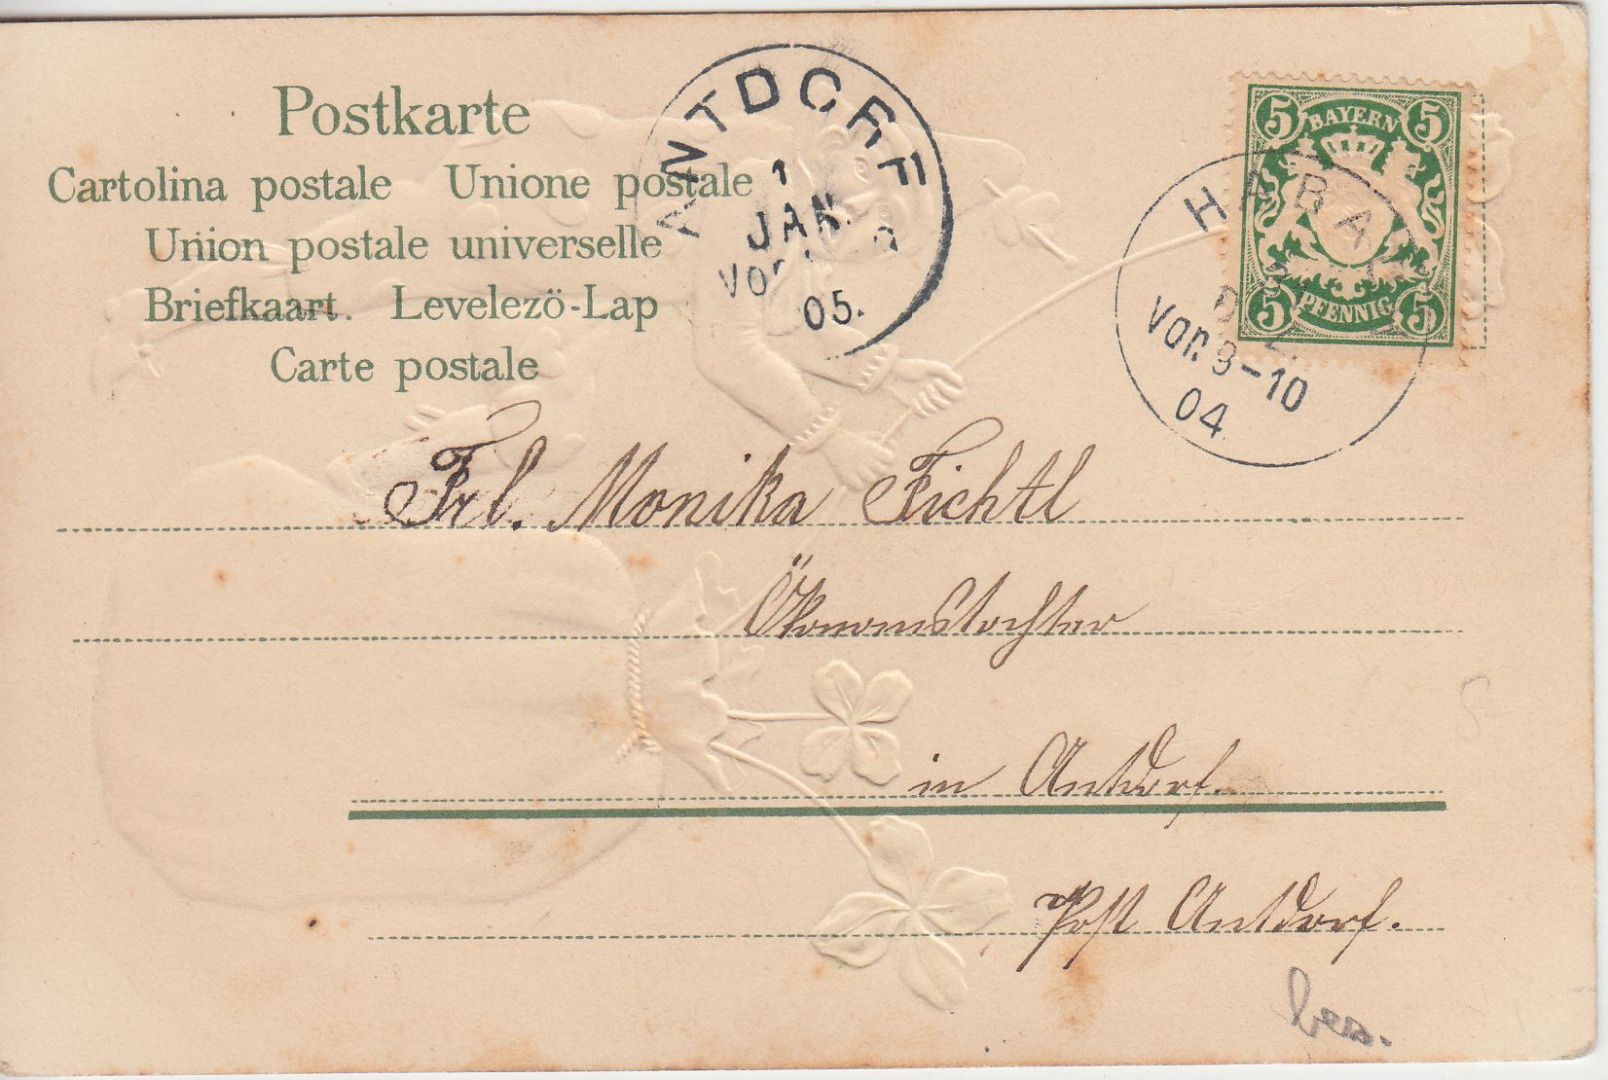 Postkarte
Cartolina postale Unione postale
Union postale universelle
Briefkaart. Levelezö-Lap
Carte postale
ANTDORF
1
JAN.
Vor
05.
BAYERN
5 5
5 PFENNIG 5
HABA
31
DEZ.
Vor. 9-10
04
Frl. Monika Fichtl
Ökonomstochter
in Antdorf.
Post Antdorf.